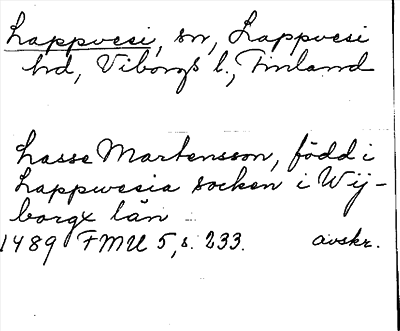 Lappvesi, sn, Lappvesi
hd, Viborgs l., Finland
Lasse Martensson, född i
Lappwesia socken i Wij-
borgx län
1489 FMU 5, s. 233. avskr.